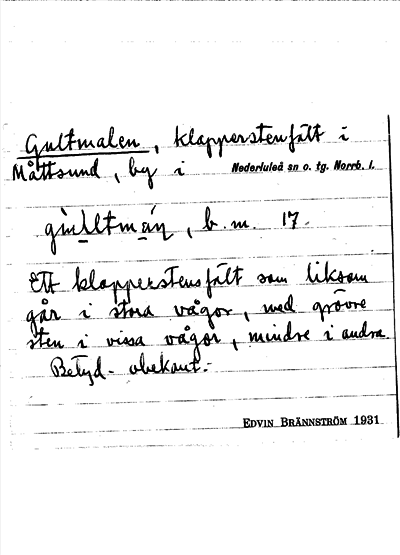 Gultmalen, klapperstensfält i
Måttsund, by i Nederluleå sn o. tg. Norrb. l.
b. m. 17.
Ett klapperstensfält som liksom
går i stora vågor, med grövre
sten i vissa vågor, mindre i andra.
Betyd. obekant.
EDVIN BRÄNNSTRÖM 1931